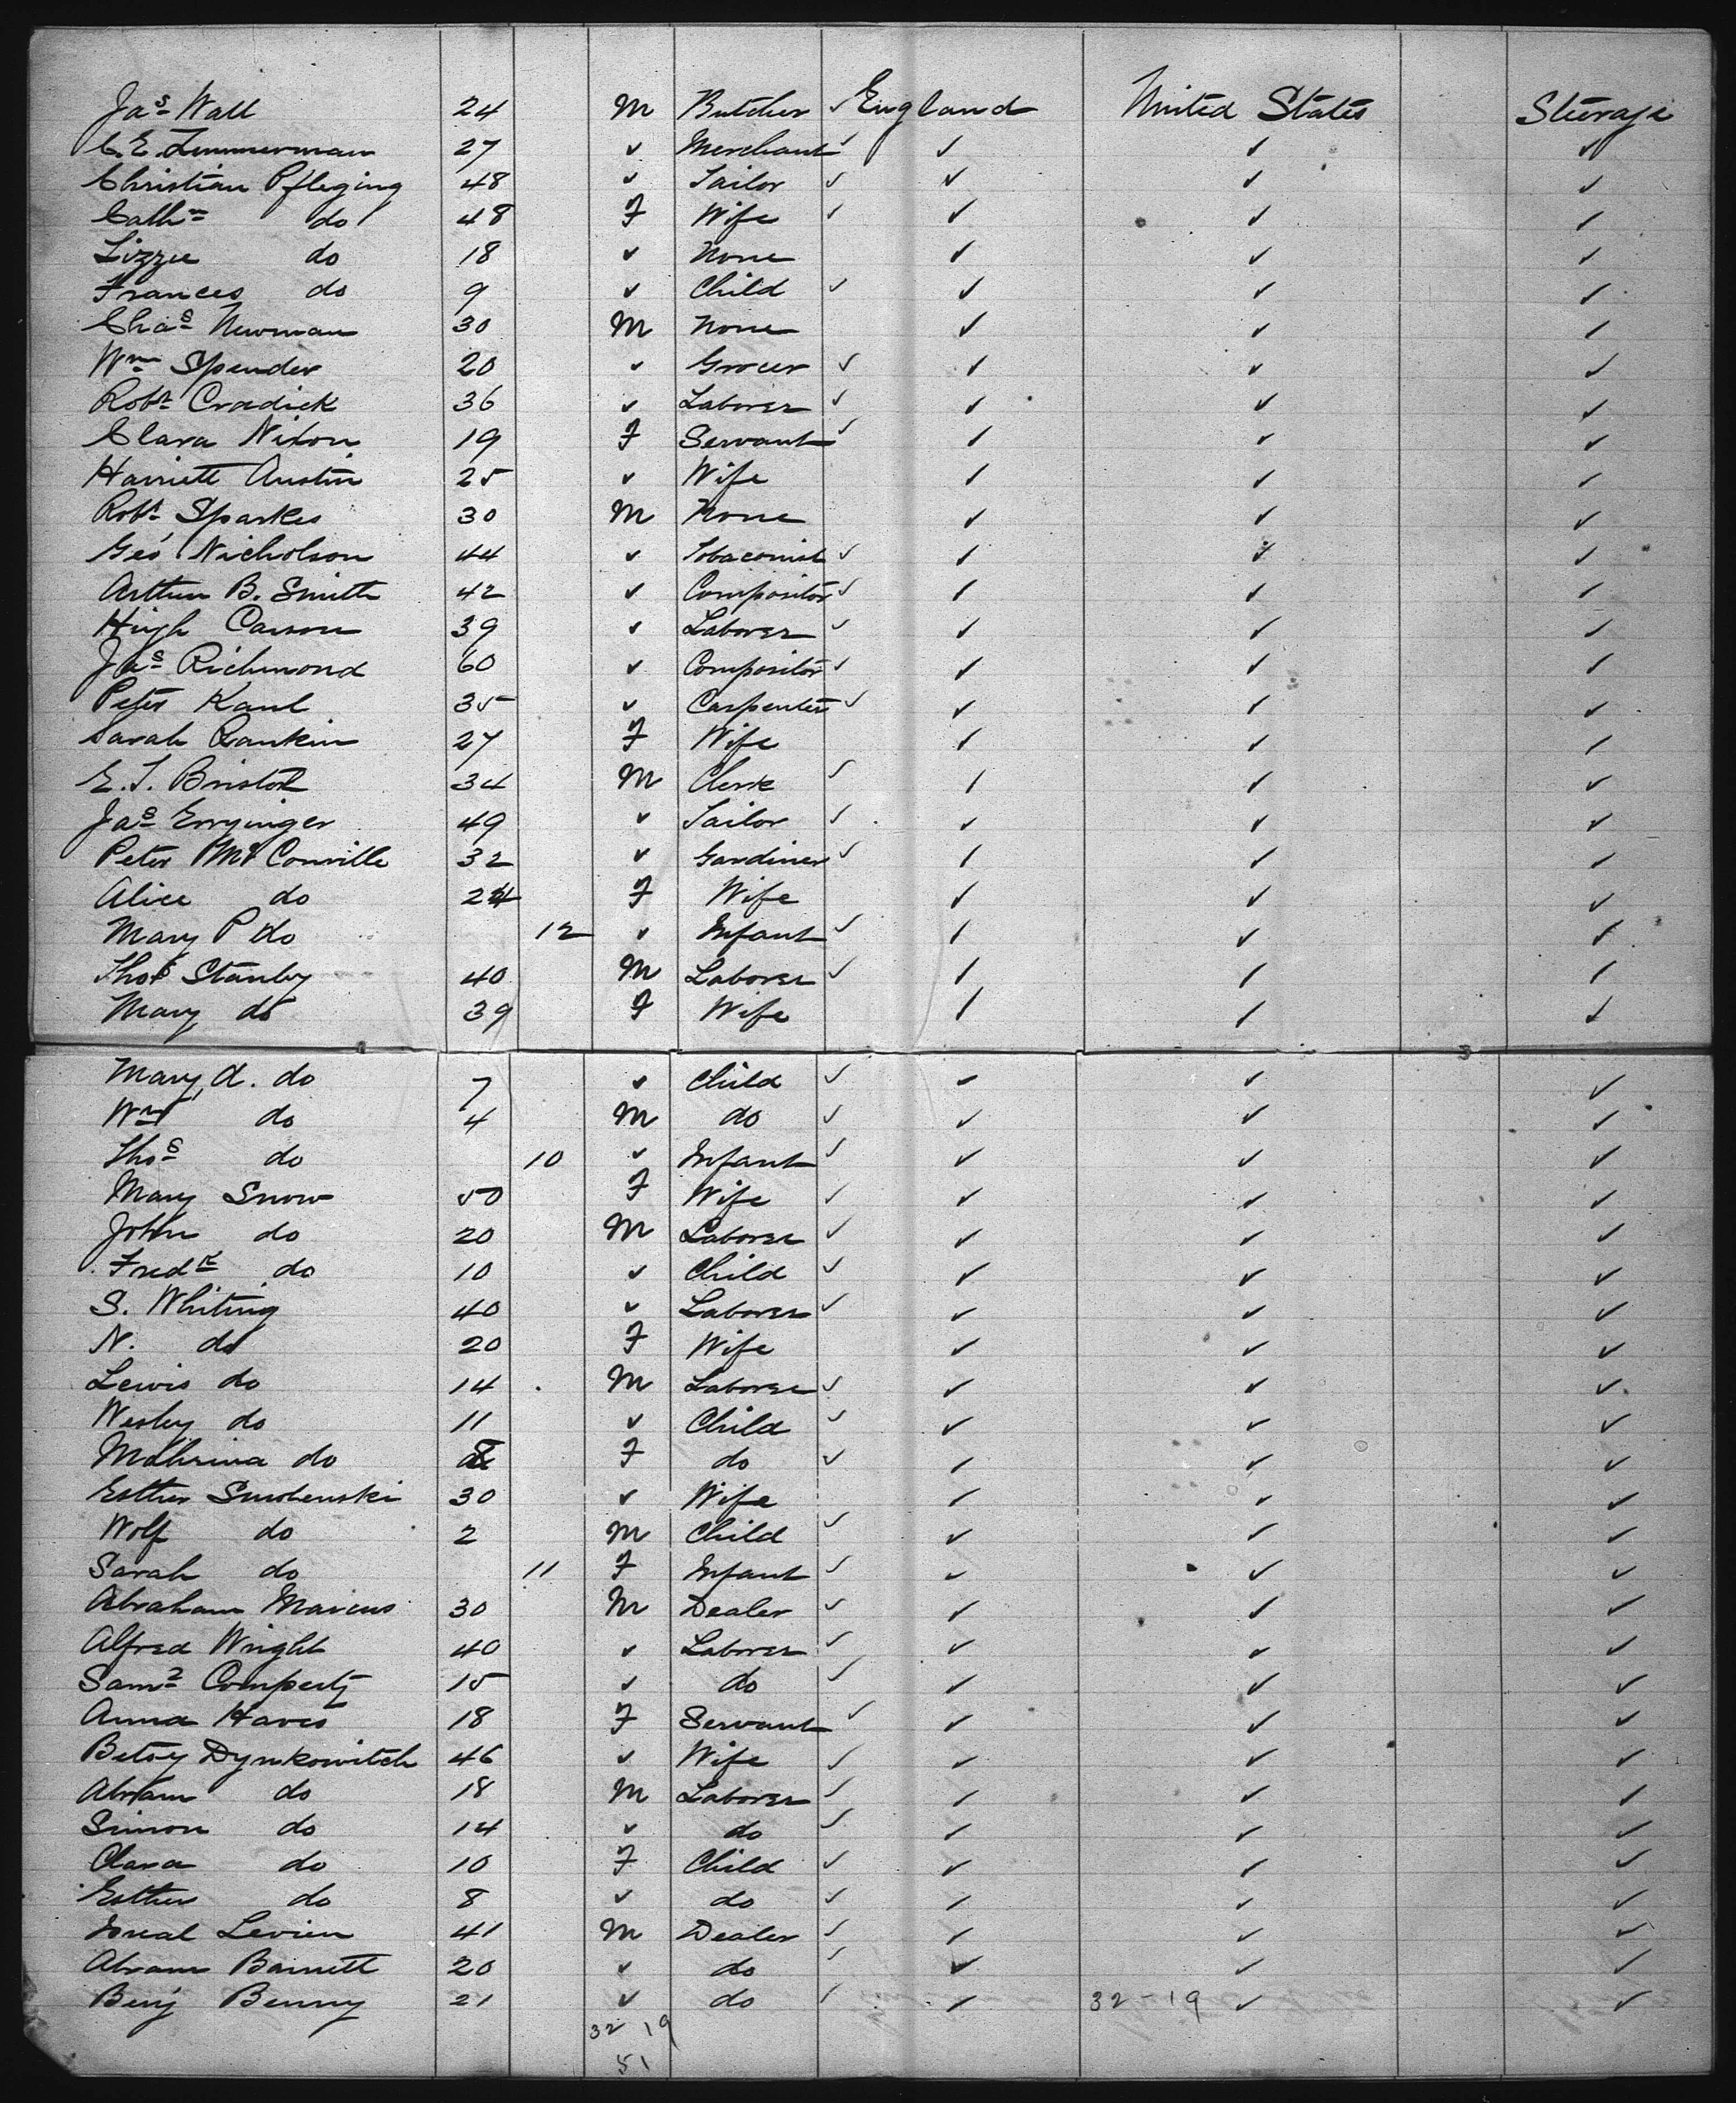 Jas Wall 24 M Butcher ✓ England United States Steerage
C. E. Zimmerman 27 ✓ Merchant ✓ ✓ ✓ ✓
Christian Pfleging 48 ✓ Tailor ✓ ✓ ✓ ✓
Cathn do 48 F Wife ✓ ✓ ✓ ✓
Lizzie do 18 ✓ None ✓ ✓ ✓
Frances do 9 ✓ Child ✓ ✓ ✓ ✓
Chas Newman 30 M None ✓ ✓ ✓
Wm Spender 20 ✓ Grocer ✓ ✓ ✓ ✓
Robt Cradick 36 ✓ Laborer ✓ ✓ ✓ ✓
Clara Nixon 19 F Servant ✓ ✓ ✓ ✓
Harriett Austin 25 ✓ Wife ✓ ✓ ✓
Robt Sparkes 30 M None ✓ ✓ ✓
Geo Nicholson 44 ✓ Tobaconist ✓ ✓ ✓ ✓
Arthur B. Smith 42 ✓ Compositor ✓ ✓ ✓ ✓
Hugh Carson 39 ✓ Laborer ✓ ✓ ✓ ✓
Jas Richmond 60 ✓ Compositor ✓ ✓ ✓ ✓
Peter Kaul 35 ✓ Carpenter ✓ ✓ ✓ ✓
Sarah Rankin 27 F Wife ✓ ✓ ✓
E. T. Bristol 34 M Clerk ✓ ✓ ✓ ✓
Jas 49 ✓ Tailor ✓ ✓ ✓ ✓
Peter McConville 32 ✓ Gardiner ✓ ✓ ✓ ✓
Alice do 24 F Wife ✓ ✓ ✓
Mary P do 12 ✓ Infant ✓ ✓ ✓ ✓
Thos Stanley 40 M Laborer ✓ ✓ ✓ ✓
Mary do 39 F Wife ✓ ✓ ✓
Mary A. do 7 ✓ Child ✓ ✓ ✓ ✓
Wm do 4 M do ✓ ✓ ✓ ✓
Thos do 10 ✓ Infant ✓ ✓ ✓ ✓
Mary Snow 50 F Wife ✓ ✓ ✓ ✓
John do 20 M Laborer ✓ ✓ ✓ ✓
Fredk do 10 ✓ Child ✓ ✓ ✓ ✓
S. Whiting 40 ✓ Laborer ✓ ✓ ✓ ✓
N. do 20 F Wife ✓ ✓ ✓
Lewis do 14 M Laborer ✓ ✓ ✓ ✓
Wesley do 11 ✓ Child ✓ ✓ ✓ ✓
do 8 F do ✓ ✓ ✓ ✓
Esther Smolenski 30 ✓ Wife ✓ ✓ ✓
Wolf do 2 M Child ✓ ✓ ✓ ✓
Sarah do 11 F Infant ✓ ✓ ✓ ✓
Abraham Marcus 30 M Dealer ✓ ✓ ✓ ✓
Alfred Wright 40 ✓ Laborer ✓ ✓ ✓ ✓
Saml Compertz 15 ✓ do ✓ ✓ ✓ ✓
Anna Haves 18 F Servant ✓ ✓ ✓ ✓
Betsy Dynkowitch 46 ✓ Wife ✓ ✓ ✓ ✓
Abram do 18 M Laborer ✓ ✓ ✓ ✓
Simon do 14 ✓ do ✓ ✓ ✓ ✓
Clara do 10 F Child ✓ ✓ ✓ ✓
Esther do 8 ✓ do ✓ ✓ ✓ ✓
Levien 41 M Dealer ✓ ✓ ✓ ✓
Abram Barnett 20 ✓ do ✓ ✓ ✓ ✓
Benj Benny 21 ✓ do ✓ ✓ 32-19 ✓ ✓
32 19
51